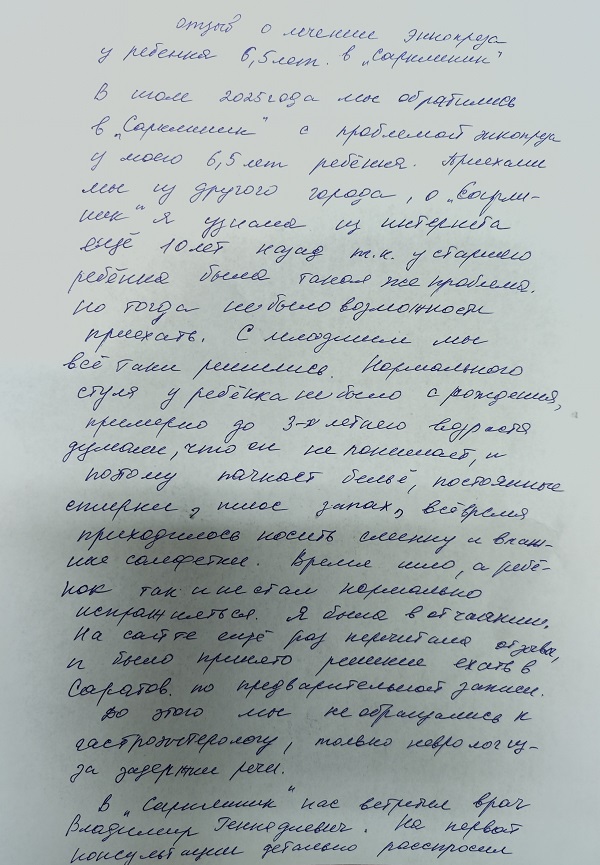 отзыв о лечении энкопреза
у ребенка 6,5 лет. в „Сарклиник"
В июле 2025 года мы обратились
в „Сарклиник" с проблемой энкопреза
у моего 6,5 лет ребёнка. Приехали
мы из другого города, о „Саркли-
ник" я узнала из интернета
ещё 10 лет назад т.к. у старшего
ребёнка была такая же проблема.
но тогда не было возможности
приехать. С младшим мы
всё таки решились. Нормального
стула у ребёнка не было с рождения,
примерно до 3-х летнего возраста
думали, что он не понимает, и
потому пачкает бельё, постоянные
стирки, плюс запах, всё время
приходилось носить сменку и влаж-
ные салфетки. Время шло, а ребё-
нок так и не стал нормально
испражняться. Я была в отчаянии.
На сайте ещё раз перечитала отзывы,
и было принято решение ехать в
Саратов. по предварительной записи.
До этого мы не обращались к
гастроэнтерологу, только неврологу-
за задержки речи.
В „Сарклиник" нас встретил врач
Владимир Геннадиевич. На первой
консультации детально расспросил